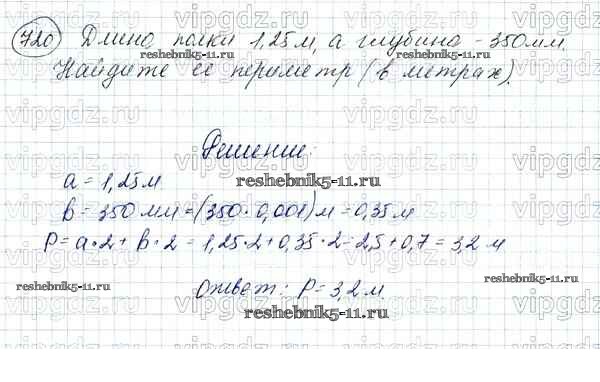 720 Длина полки 1,25 м, а глубина - 350 мм.
Найдите её периметр (в метрах).
reshebnik5-11.ru
Решение:
a = 1,25 м
reshebnik5-11.ru
b = 350 мм = (350 · 0,001) м = 0,35 м
P = a · 2 + b · 2 = 1,25 · 2 + 0,35 · 2 = 2,5 + 0,7 = 3,2 м
reshebnik5-11.ru
reshebnik5-11.ru
ответ: P = 3,2 м.
reshebnik5-11.ru
vipgdz